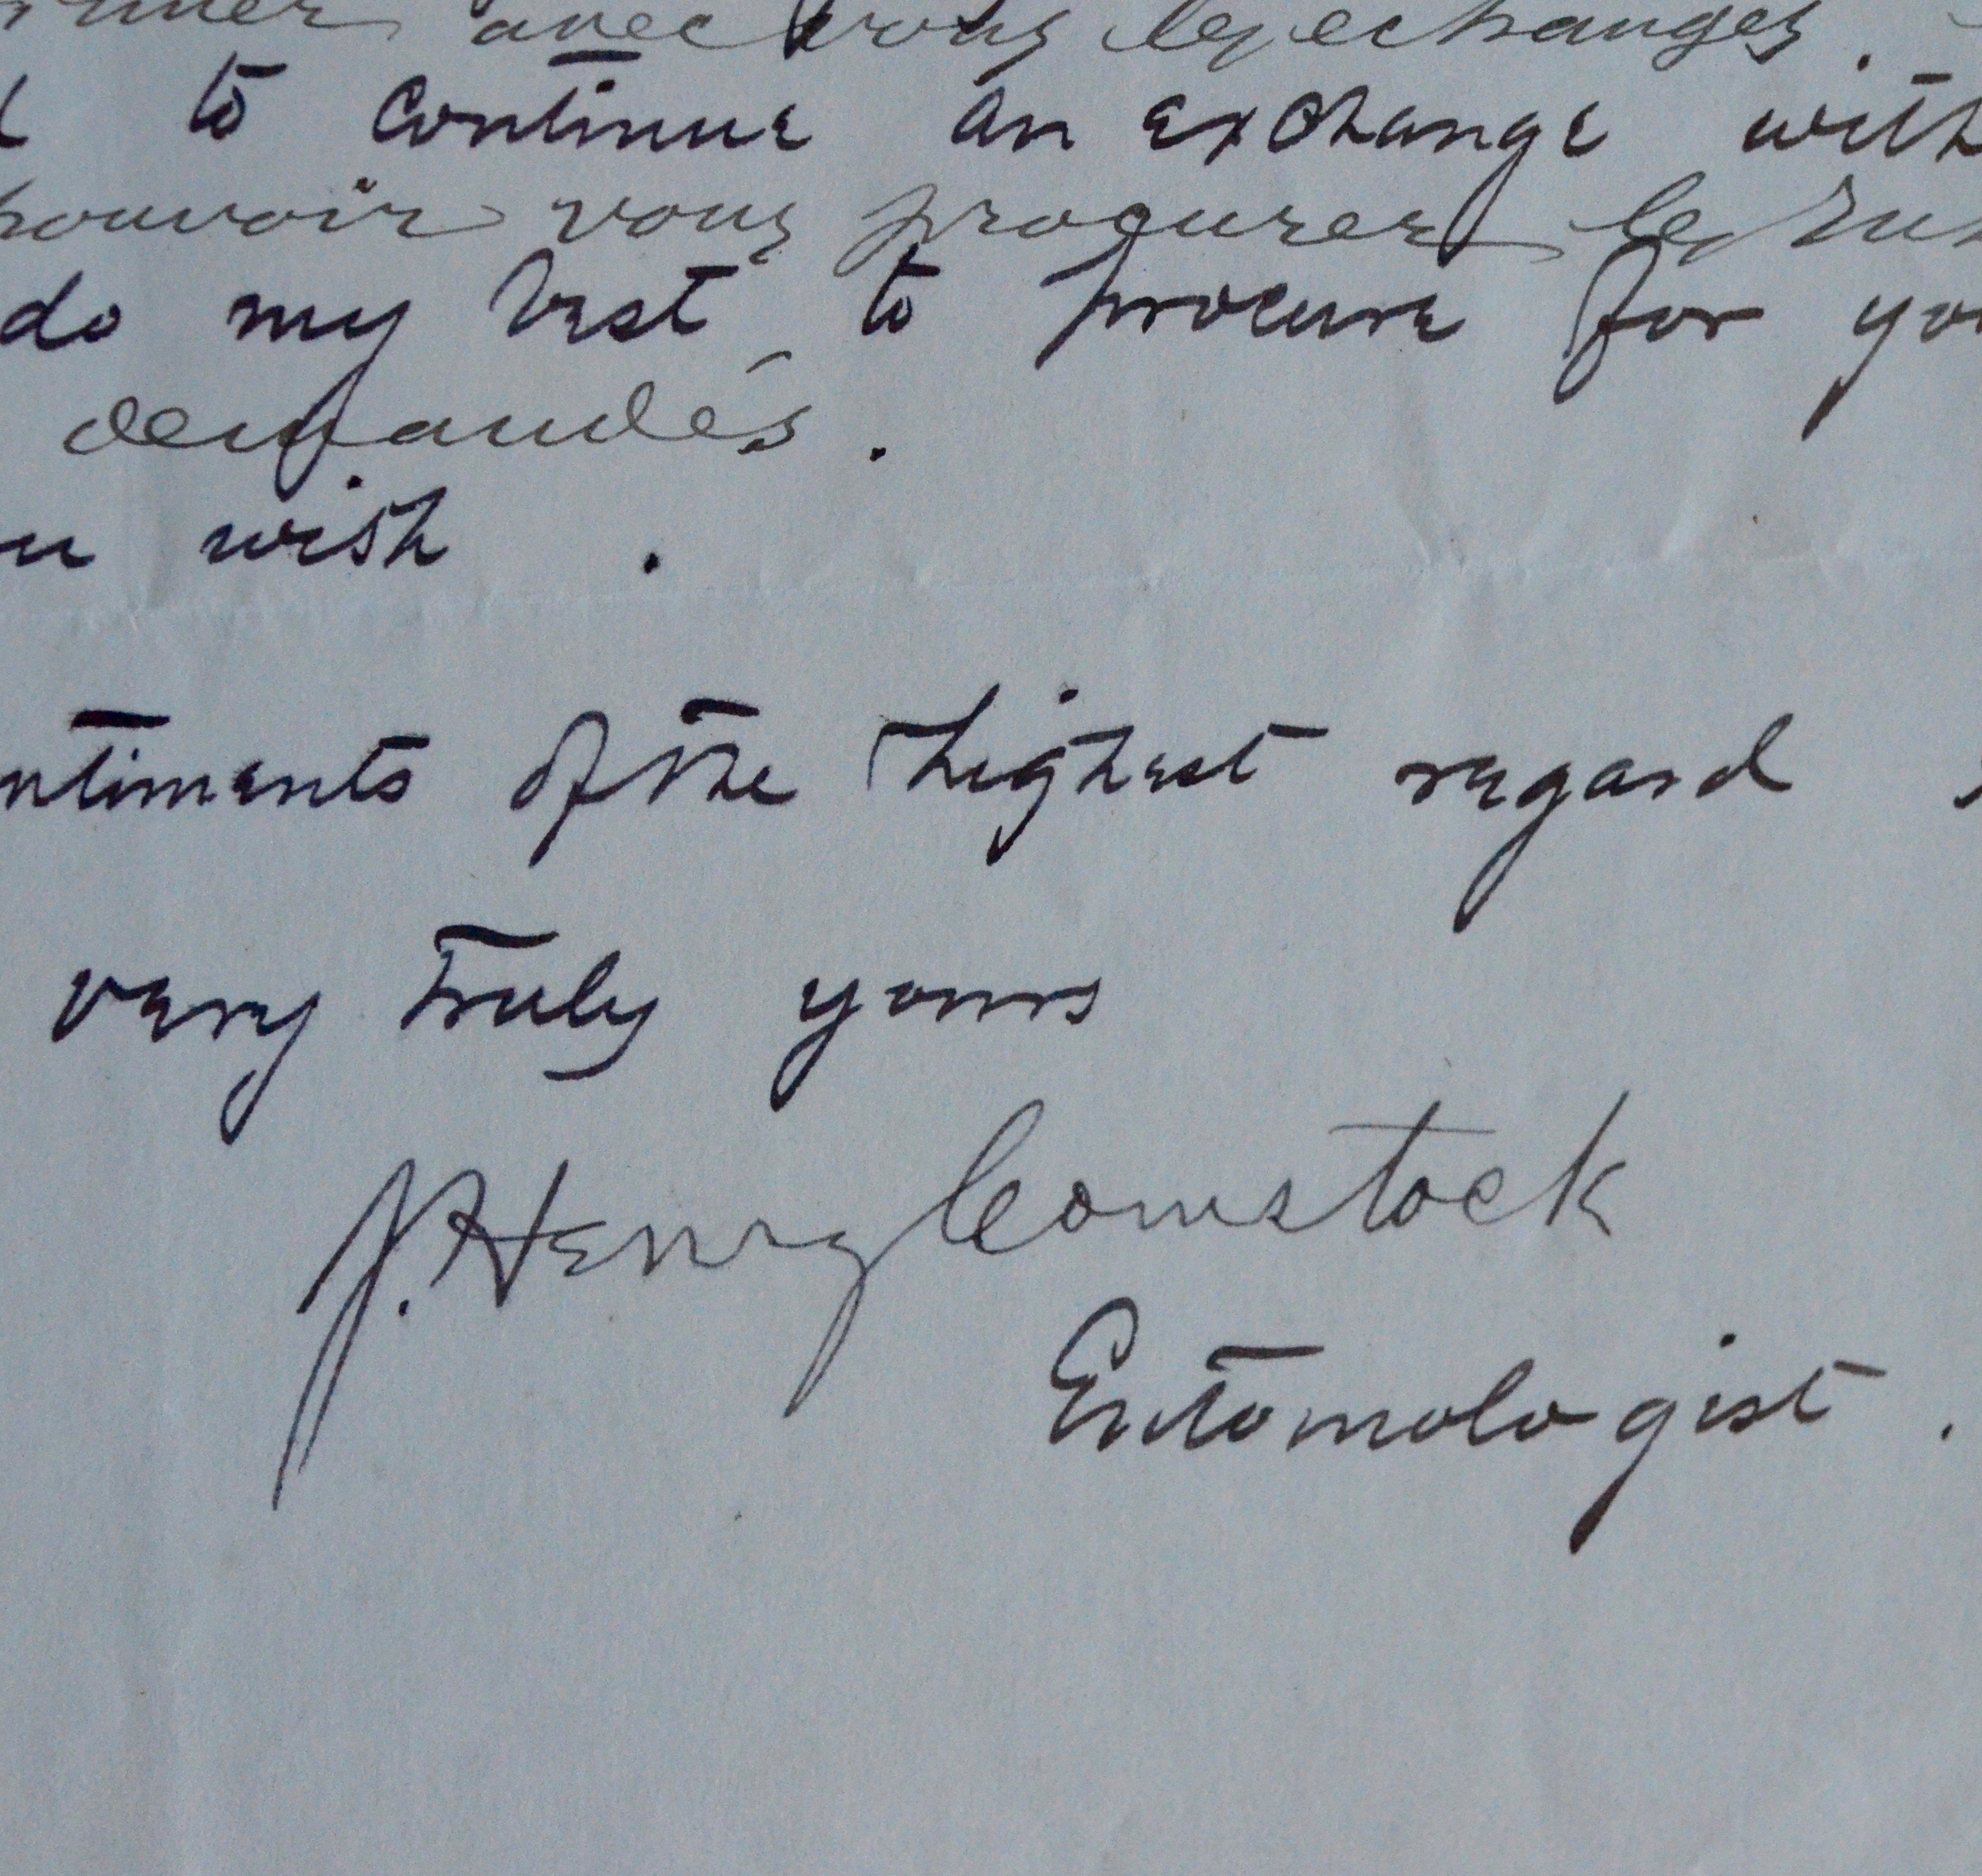 avec vous les echanges.
to continue an exchange with
pouvoir vous procurer les
do my best to procure for you
demandés.
wish.
sentiments of the highest regard
very truly yours
J. Henry Comstock
Entomologist.